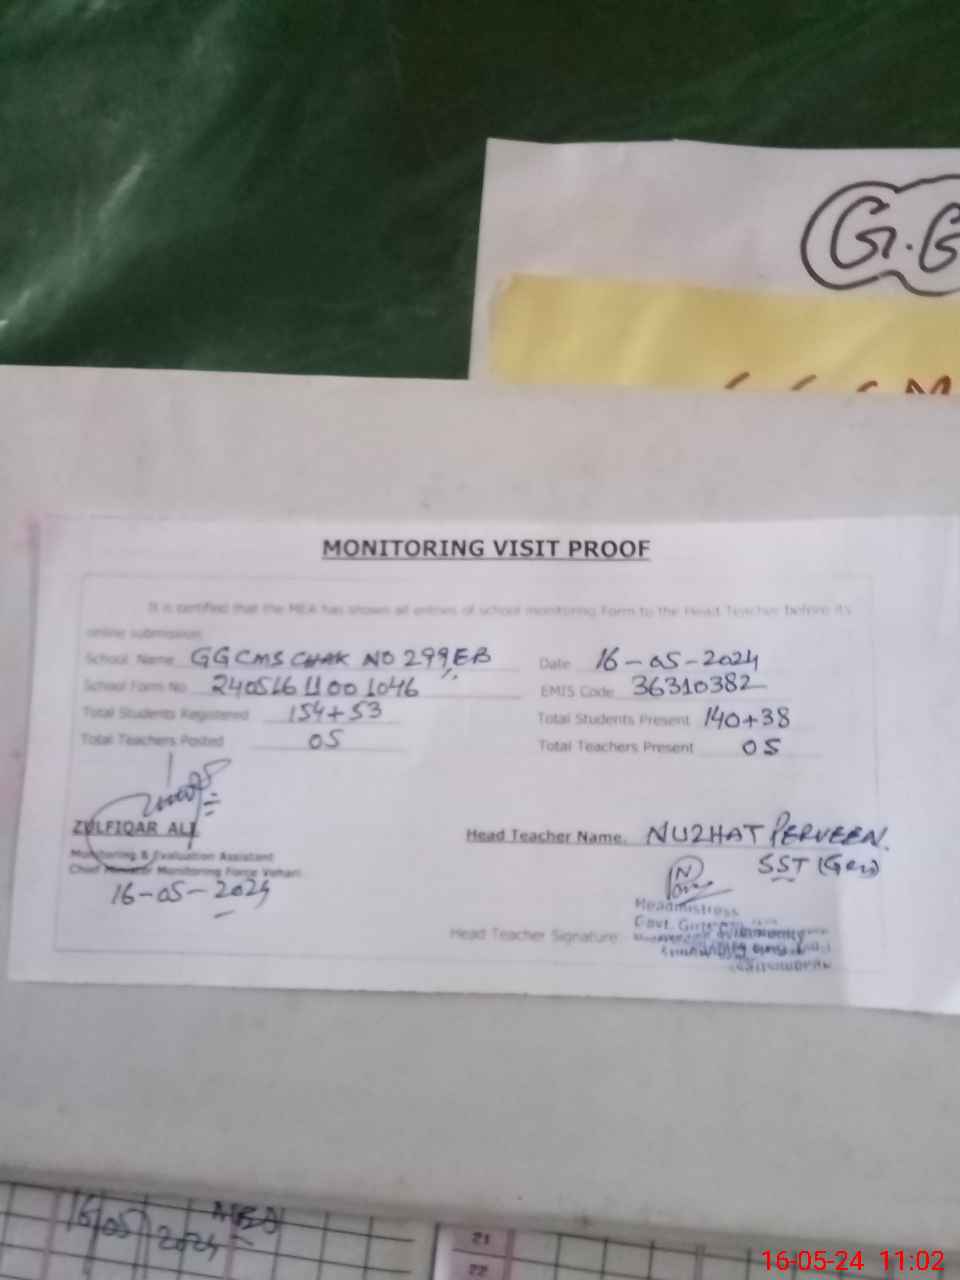 G.G
MONITORING VISIT PROOF
It is certified that the MEA has shown all entries of school monitoring Form to the Head Teacher before its
online submission
School Name GGCMS CHAK NO 299,EB Date 16-05-2024
School Form No 240516 11001046 EMIS Code 36310382
Total Students Registered 154+53 Total Students Present 140+38
Total Teachers Posted 05 Total Teachers Present 05
ZULFIQAR ALI
Monitoring & Evaluation Assistant
Chief Minister Monitoring Force Vehari
16-05-2024
Head Teacher Name. NUZHAT PERVEEN.
SST (Gen)
Headmistress
Govt. Girls
Head Teacher Signature:
16/05/2024
21
22
16-05-24 11:02